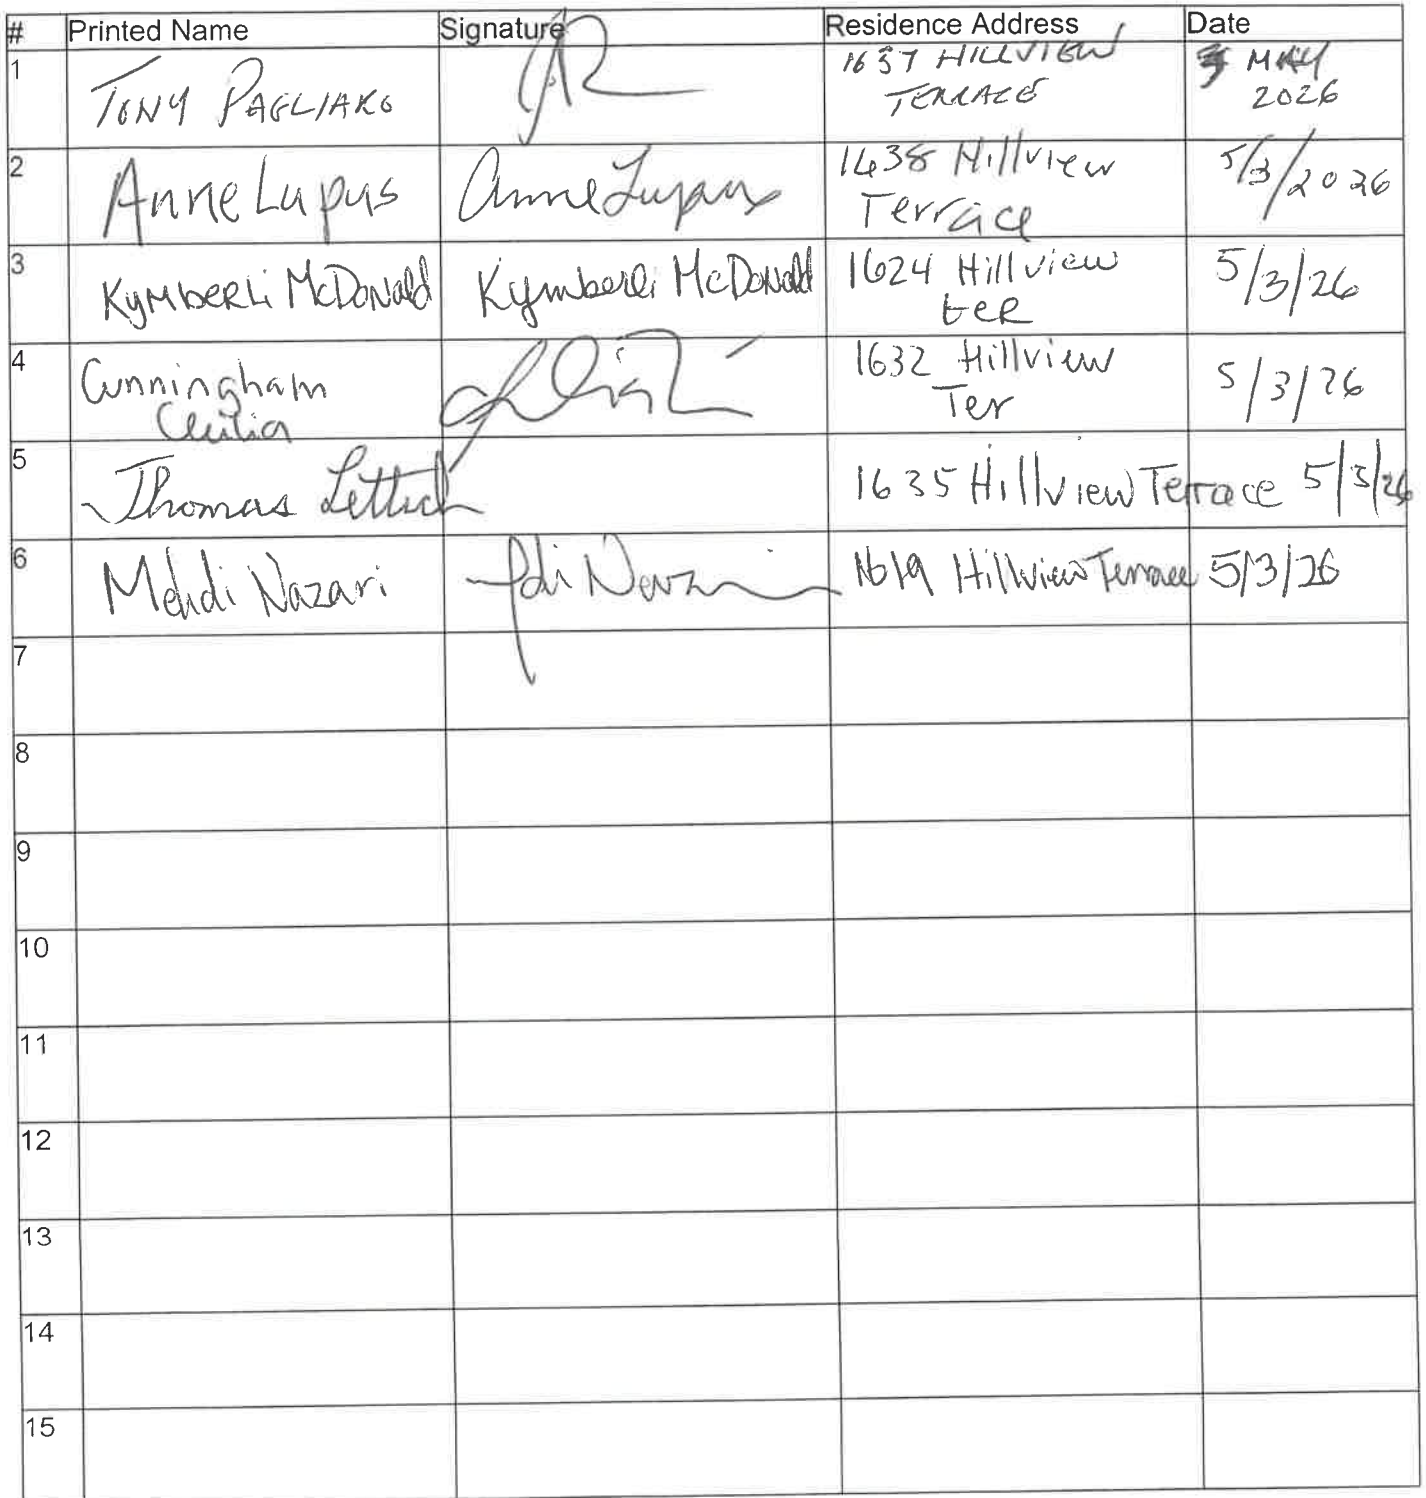 # Printed Name Signature Residence Address Date
1 TONY PAGLIARO 1637 HILLVIEW TERRACE 3 MAY 2026
2 Anne Lupus Anne Lupus 1638 Hillview Terrace 5/3/2026
3 Kymberli McDonald Kymberli McDonald 1624 Hillview ter 5/3/26
4 Cunningham Cecilia 1632 Hillview Ter 5/3/26
5 Thomas 1635 Hillview Terrace 5/3/26
6 Mehdi Nazari 1619 Hillview Terrace 5/3/26
7
8
9
10
11
12
13
14
15